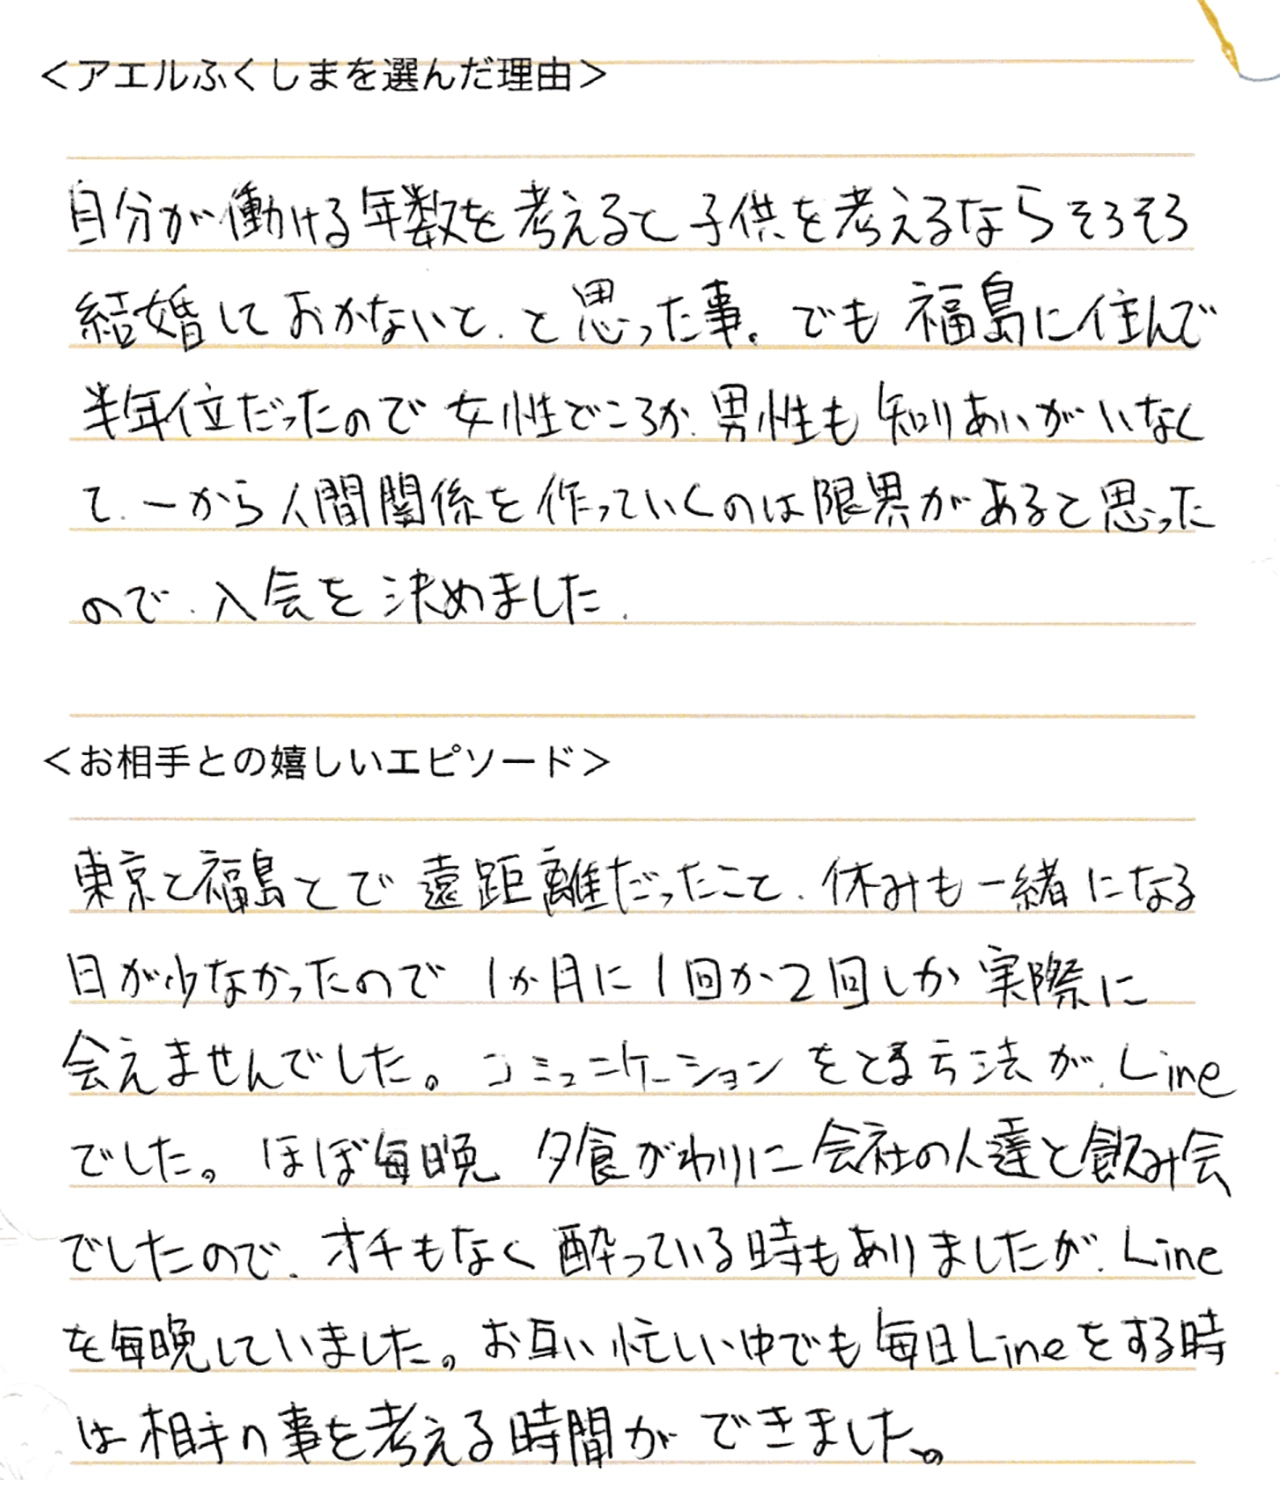 ＜アエルふくしまを選んだ理由＞
自分が働ける年数を考えると子供を考えるならそろそろ
結婚しておかないと、と思った事。でも福島に住んで
半年位だったので女性どころか、男性も知りあいがいなく
て、一から人間関係を作っていくのは限界があると思った
ので、入会を決めました.
＜お相手との嬉しいエピソード＞
東京と福島とで遠距離だったこと、休みも一緒になる
日が少なかったので1か月に1回か2回しか実際に
会えませんでした。コミュニケーションをとる方法が、Line
でした。ほぼ毎晩夕食がわりに会社の人達と飲み会
でしたので、オチもなく酔っている時もありましたが、Line
を毎晩していました。お互い忙しい中でも毎日Lineをする時
は相手の事を考える時間ができました。